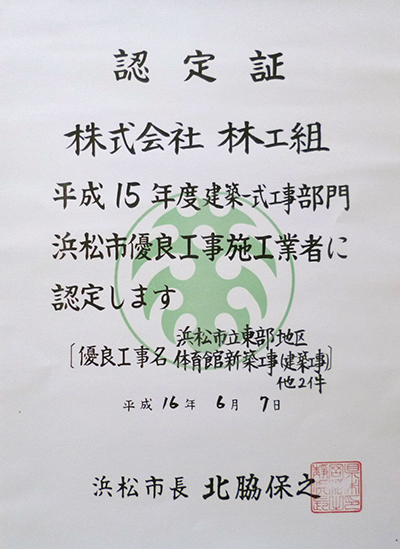 認定証
株式会社 林工組
平成15年度建築一式工事部門
浜松市優良工事施工業者に
認定します
浜松市立東部地区
〔優良工事名 体育館新築工事(建築工事)〕
他2件
平成16年6月7日
浜松市長 北脇保之